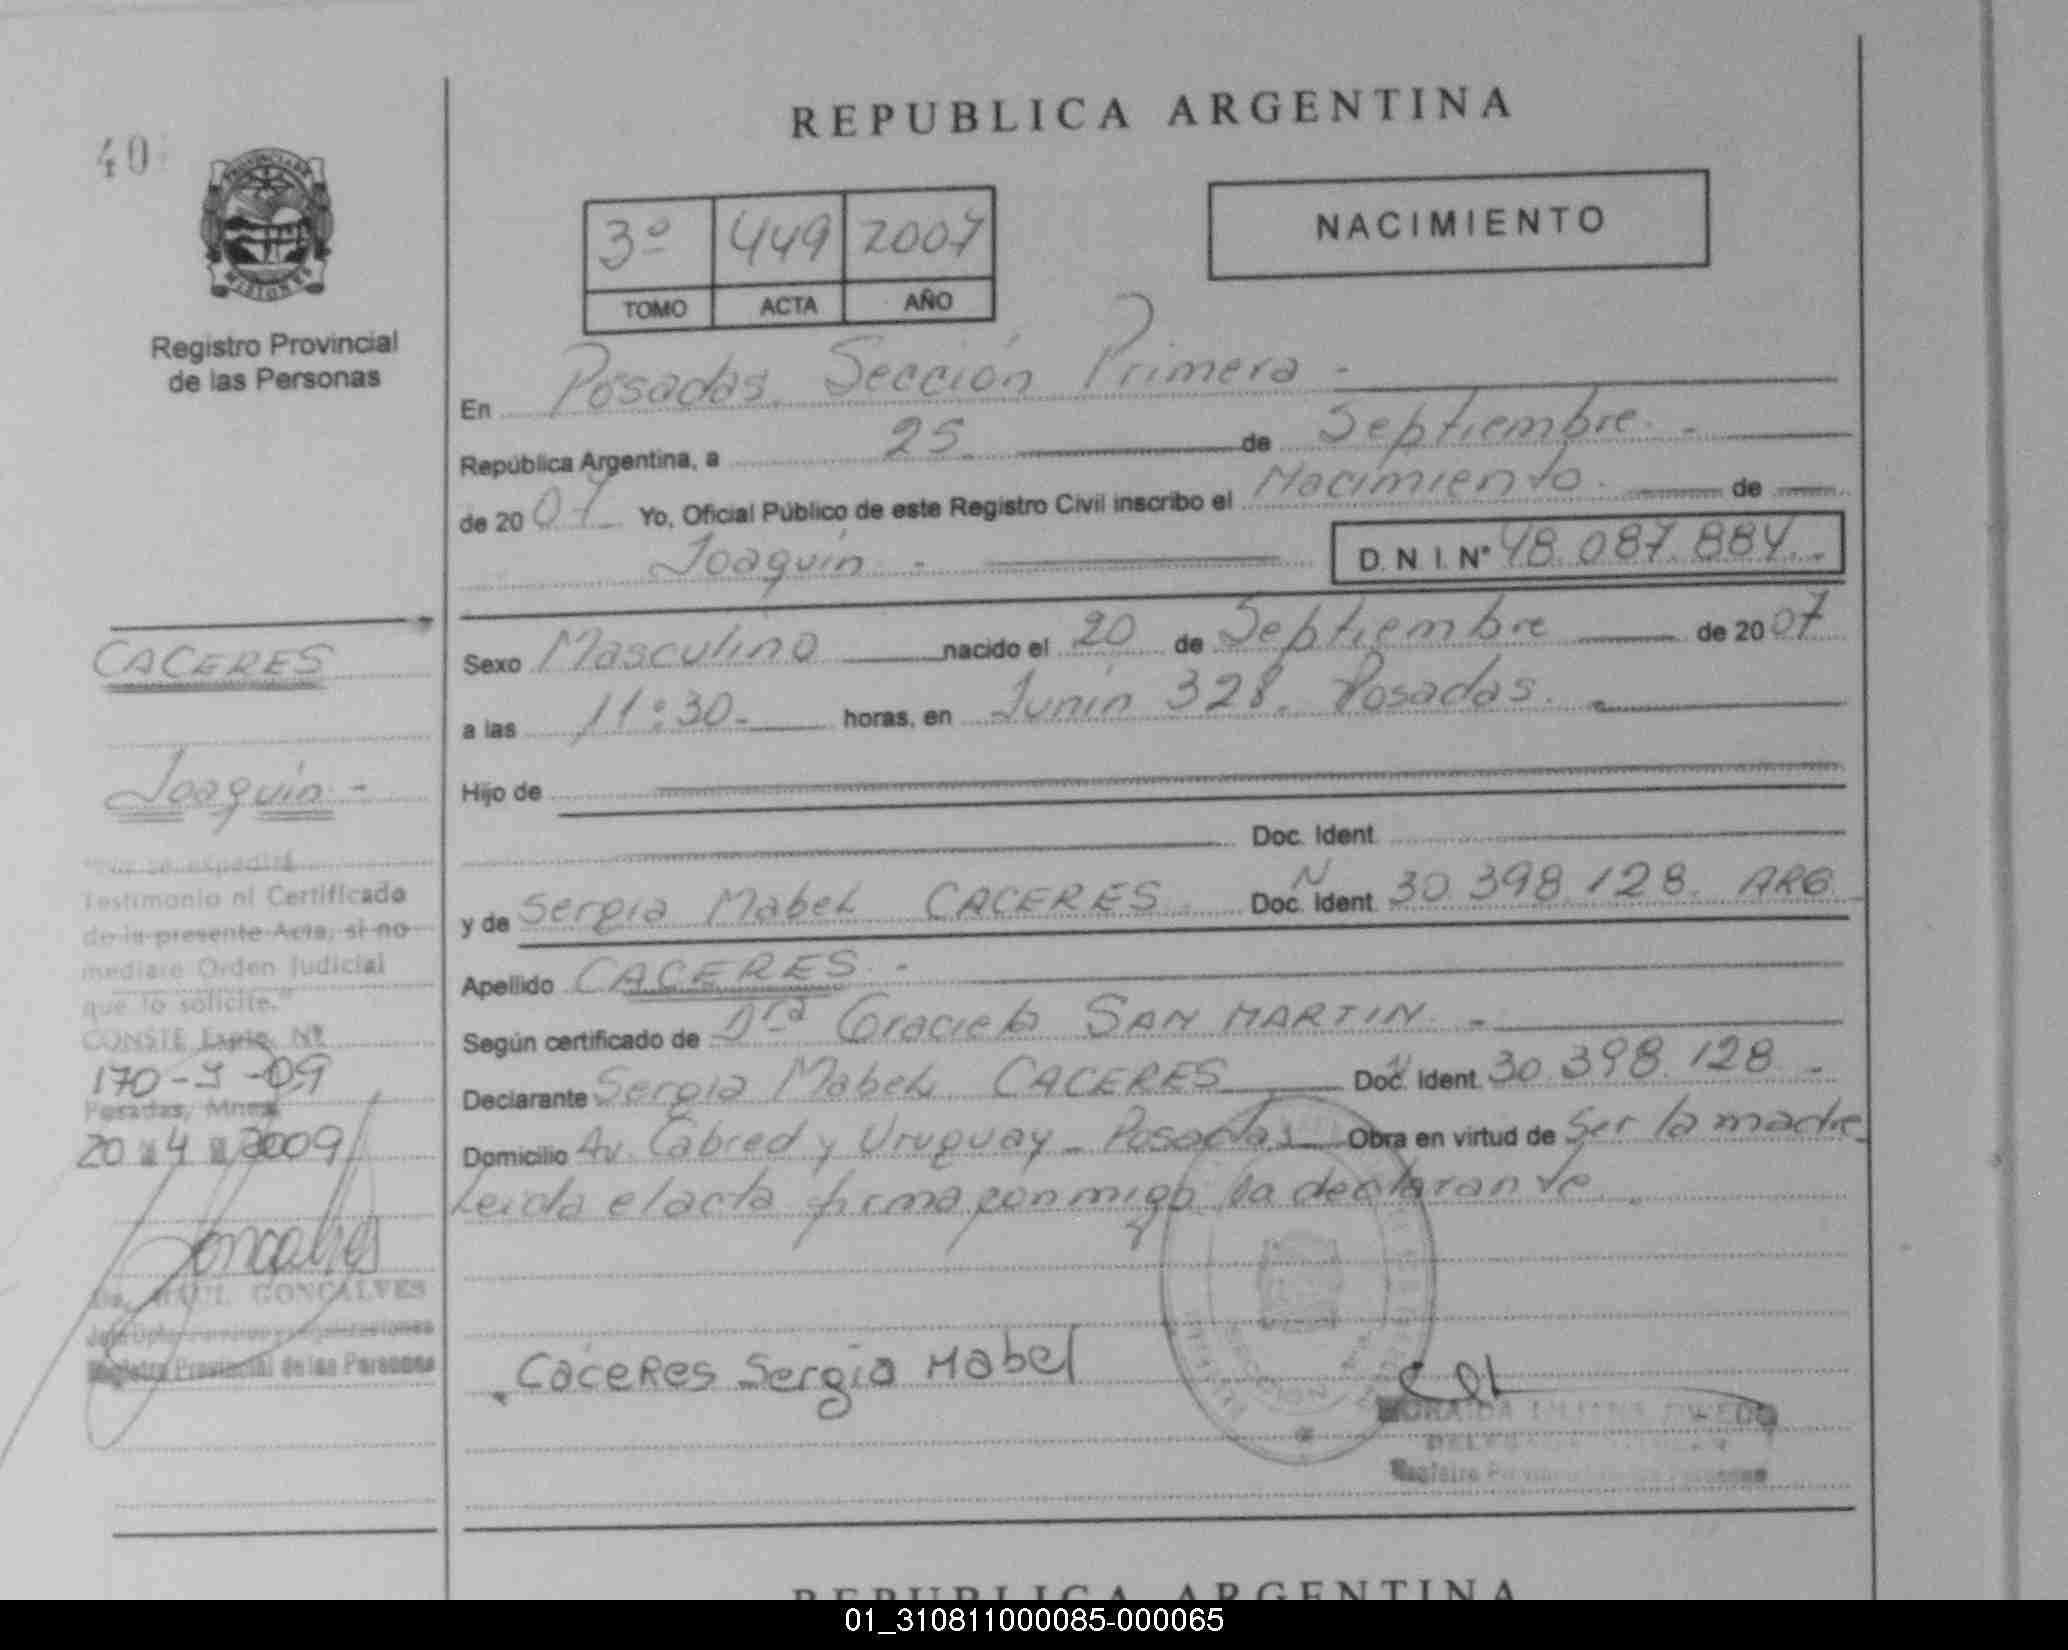 REPUBLICA ARGENTINA
40
PROVINCIA DE
MISIONES
Registro Provincial
de las Personas
3º 449 2007
TOMO ACTA AÑO
NACIMIENTO
En Posadas Sección Primera -
República Argentina, a 25 de Septiembre. -
de 2007 Yo, Oficial Público de este Registro Civil inscribo el Nacimiento. de
Joaquín - D. N. I. Nº 48.087.884. -
CACERES
Joaquín -
Sexo Masculino nacido el 20 de Septiembre de 2007
a las 11:30- horas, en Junín 328. Posadas. -
Hijo de
Doc. Ident.
y de Sergia Mabel CACERES Doc. N Ident. 30.398.128. ARG. -
Apellido CACERES. -
Según certificado de Dra Graciela SAN MARTIN -
Declarante Sergia Mabel CACERES Doc. Ident. 30.398.128 -
Domicilio Av. Cabred y Uruguay - Posadas Obra en virtud de Ser la madre
Leida el acta firma conmigo la declarante.
"No se expedirá
Testimonio ni Certificado
de la presente Acta, si no
mediare Orden Judicial
que lo solicite."
CONSTE Expte. Nº
170-J-09
Posadas, Mnes.
20 4 2009
Goncalves
Dr. RAUL GONCALVES
Registro Provincial de las Personas
Caceres Sergia Mabel
SECCION
Registro Provincial de las Personas
REPUBLICA ARGENTINA
01_310811000085-000065